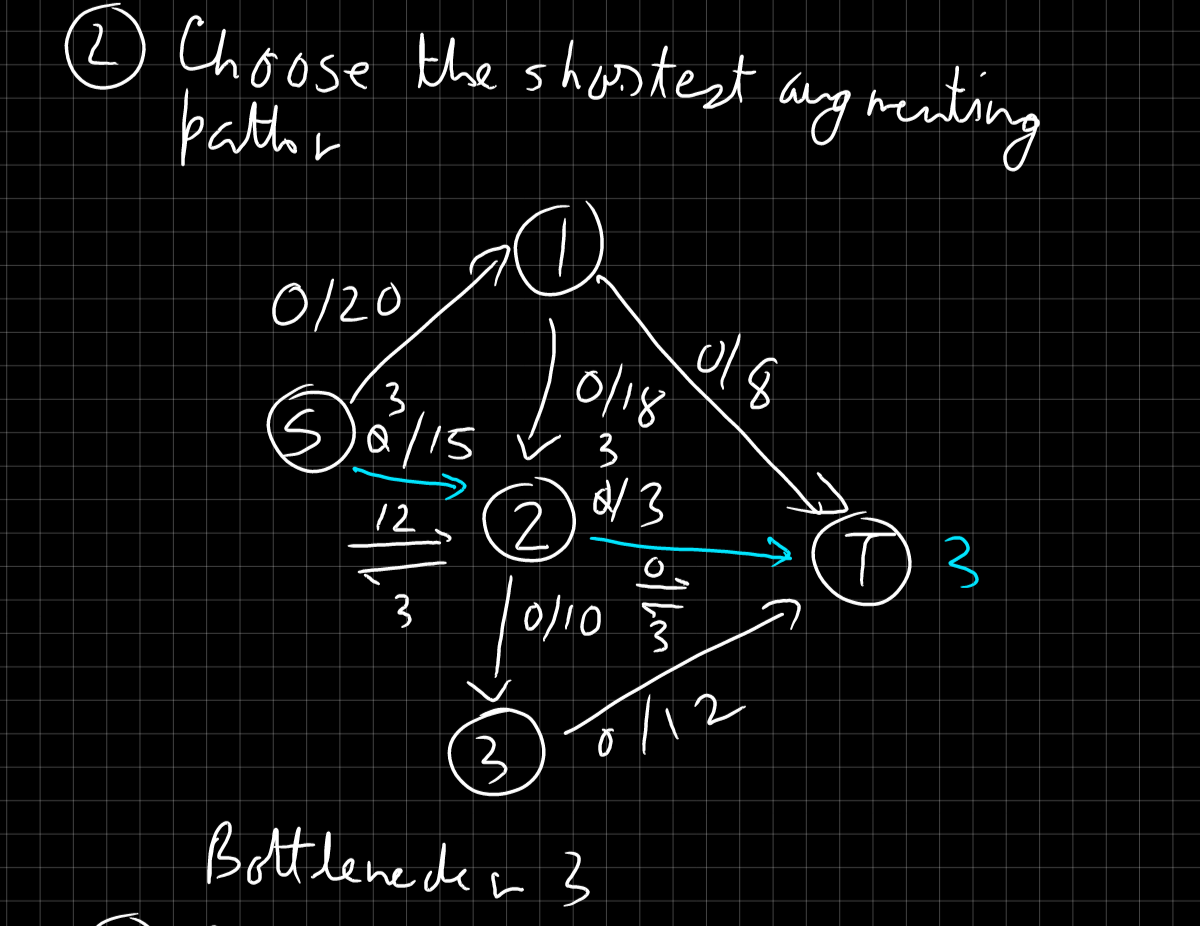 ② Choose the shortest augmenting
path
1
0/20
0/8
3
0/18
S
0/15
3
0/3
2
12
T
3
0
3
0/10
3
0/12
3
Bottleneck 3